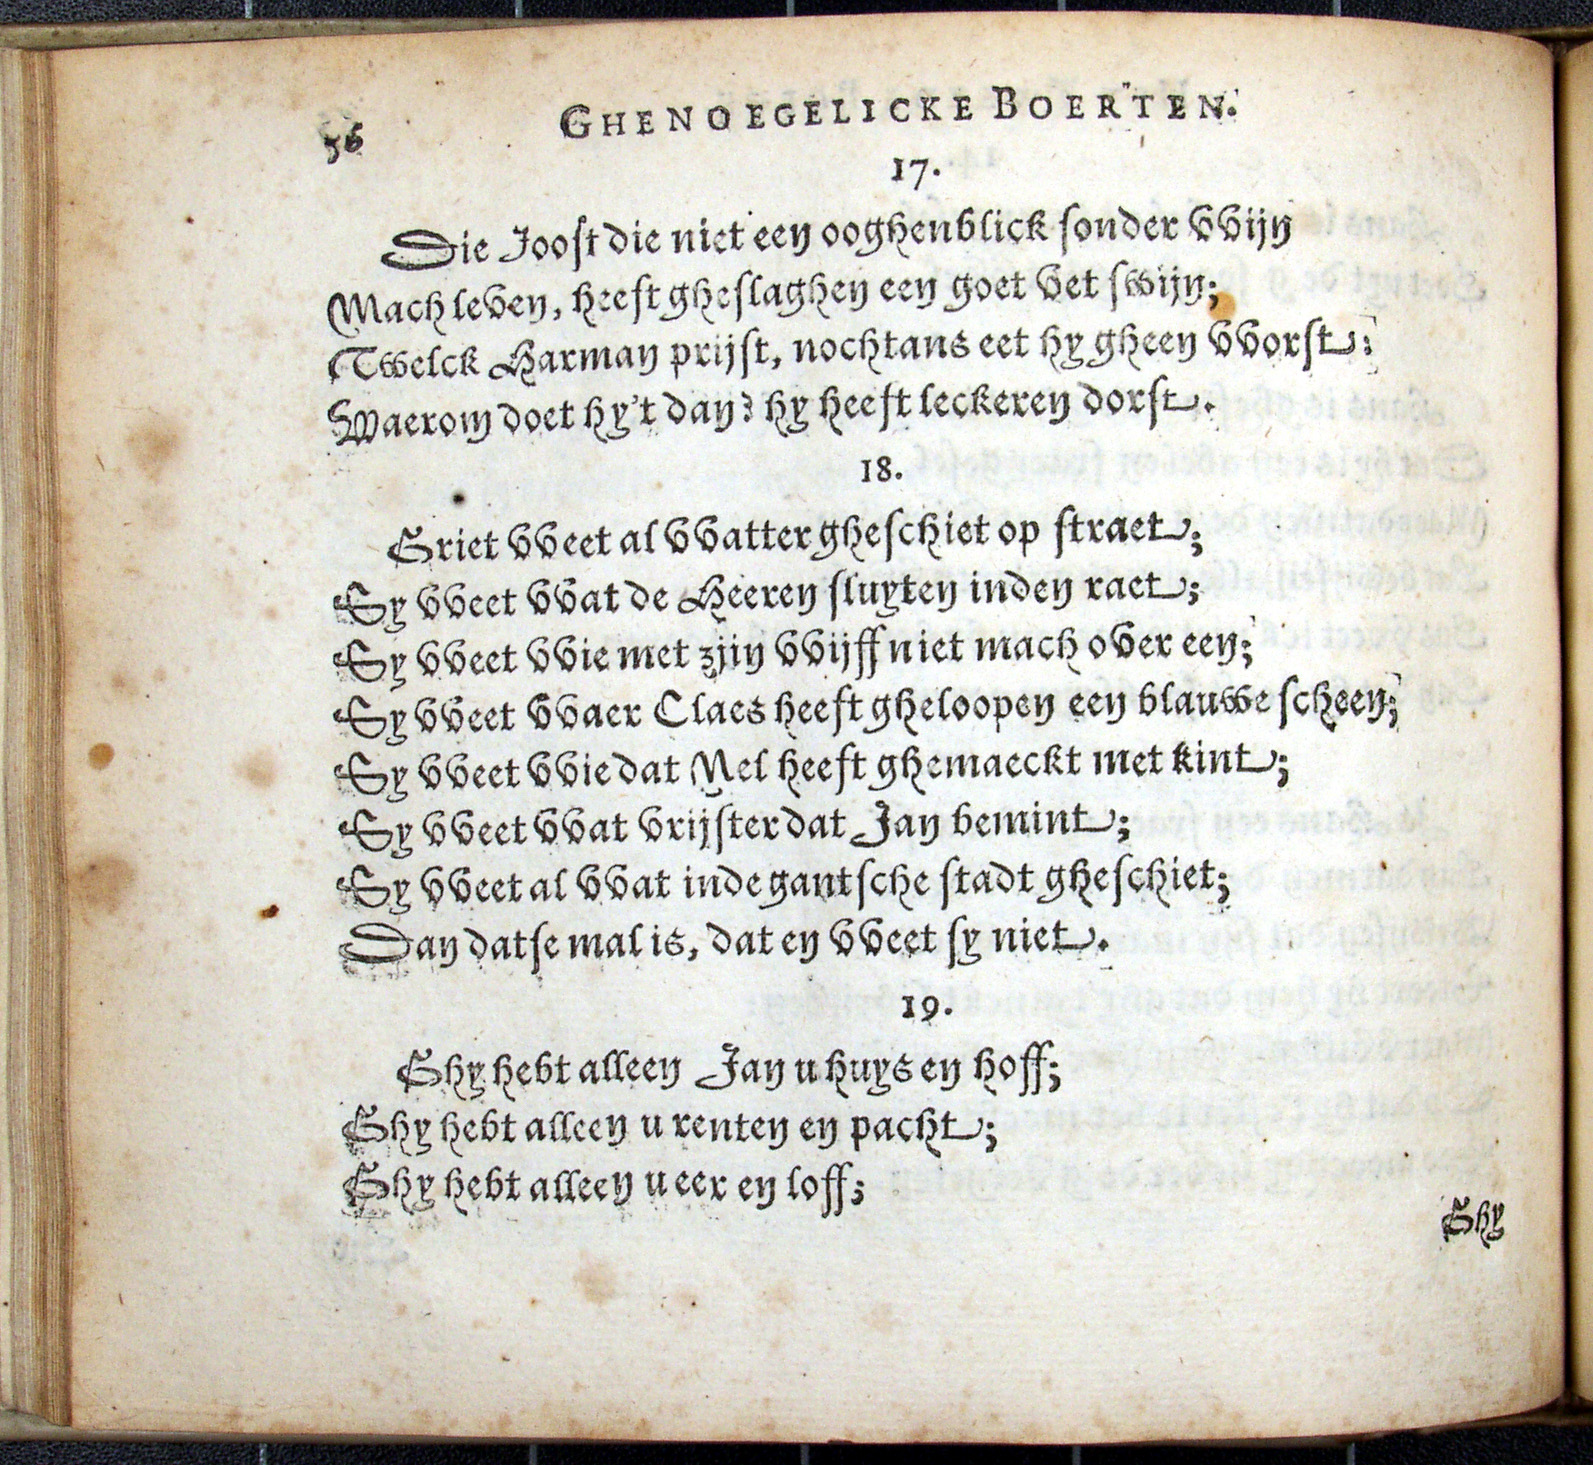 56 GHENOEGELICKE BOERTEN.
17.
Die Joost die niet een ooghenblick sonder vvijn
Mach leven, heeft gheslaghen een goet vet swijn;
Twelck Harman prijst, nochtans eet hy gheen vvorst:
Waerom doet hy't dan? hy heeft leckeren dorst.
18.
Griet vveet al vvatter gheschiet op straet;
Sy vveet vvat de Heeren sluyten inden raet;
Sy vveet vvie met zjin vvijff niet mach over een;
Sy vveet vvaer Claes heeft gheloopen een blauwe scheen;
Sy vveet vvie dat Nel heeft ghemaeckt met kint;
Sy vveet vvat vrijster dat Jan bemint;
Sy vveet al vvat inde gantsche stadt gheschiet;
Dan datse mal is, dat en vveet sy niet.
19.
Ghy hebt alleen Jan u huys en hoff;
Ghy hebt alleen u renten en pacht;
Ghy hebt alleen u eer en loff;
Ghy